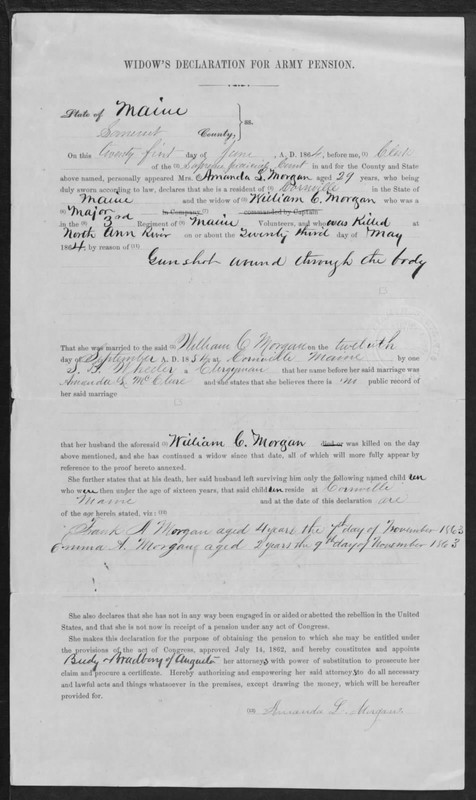 WIDOW'S DECLARATION FOR ARMY PENSION.
State of Maine
Somerset County, } ss.
On this twenty first day of June A. D. 1864, before me, Clerk
of the Supreme Judicial Court in and for the County and State
above named, personally appeared Mrs. Amanda L. Morgan aged 29 years, who being
duly sworn according to law, declares that she is a resident of Cornville in the State of
Maine and the widow of William C. Morgan who was a
Major in Company commanded by Captain
in the 3rd Regiment of Maine Volunteers, and who was Killed at
North Ann River on or about the Twenty third day of May
1864, by reason of
Gunshot wound through the body
That she was married to the said William C Morgan on the twelvth
day of September A. D. 1854 at Cornville Maine by one
Wheeler a Clergyman that her name before her said marriage was
Amanda L McClure and she states that she believes there is no public record of
her said marriage
that her husband the aforesaid William C. Morgan died or was killed on the day
above mentioned, and she has continued a widow since that date, all of which will more fully appear by
reference to the proof hereto annexed.
She further states that at his death, her said husband left surviving him only the following named child ren
who were then under the age of sixteen years, that said children reside at Cornville
Maine and at the date of this declaration are
of the age herein stated, viz:
Frank A Morgan aged 4 years the 7th day of November 1863
Emma A. Morgan aged 2 years the 9th day of November 1863
She also declares that she has not in any way been engaged in or aided or abetted the rebellion in the United
States, and that she is not now in receipt of a pension under any act of Congress.
She makes this declaration for the purpose of obtaining the pension to which she may be entitled under
the provisions of the act of Congress, approved July 14, 1862, and hereby constitutes and appoints
Bradbury of Augusta her attorneys with power of substitution to prosecute her
claim and procure a certificate. Hereby authorising and empowering her said attorneys to do all necessary
and lawful acts and things whatsoever in the premises, except drawing the money, which will be hereafter
provided for.
Amanda L. Morgan